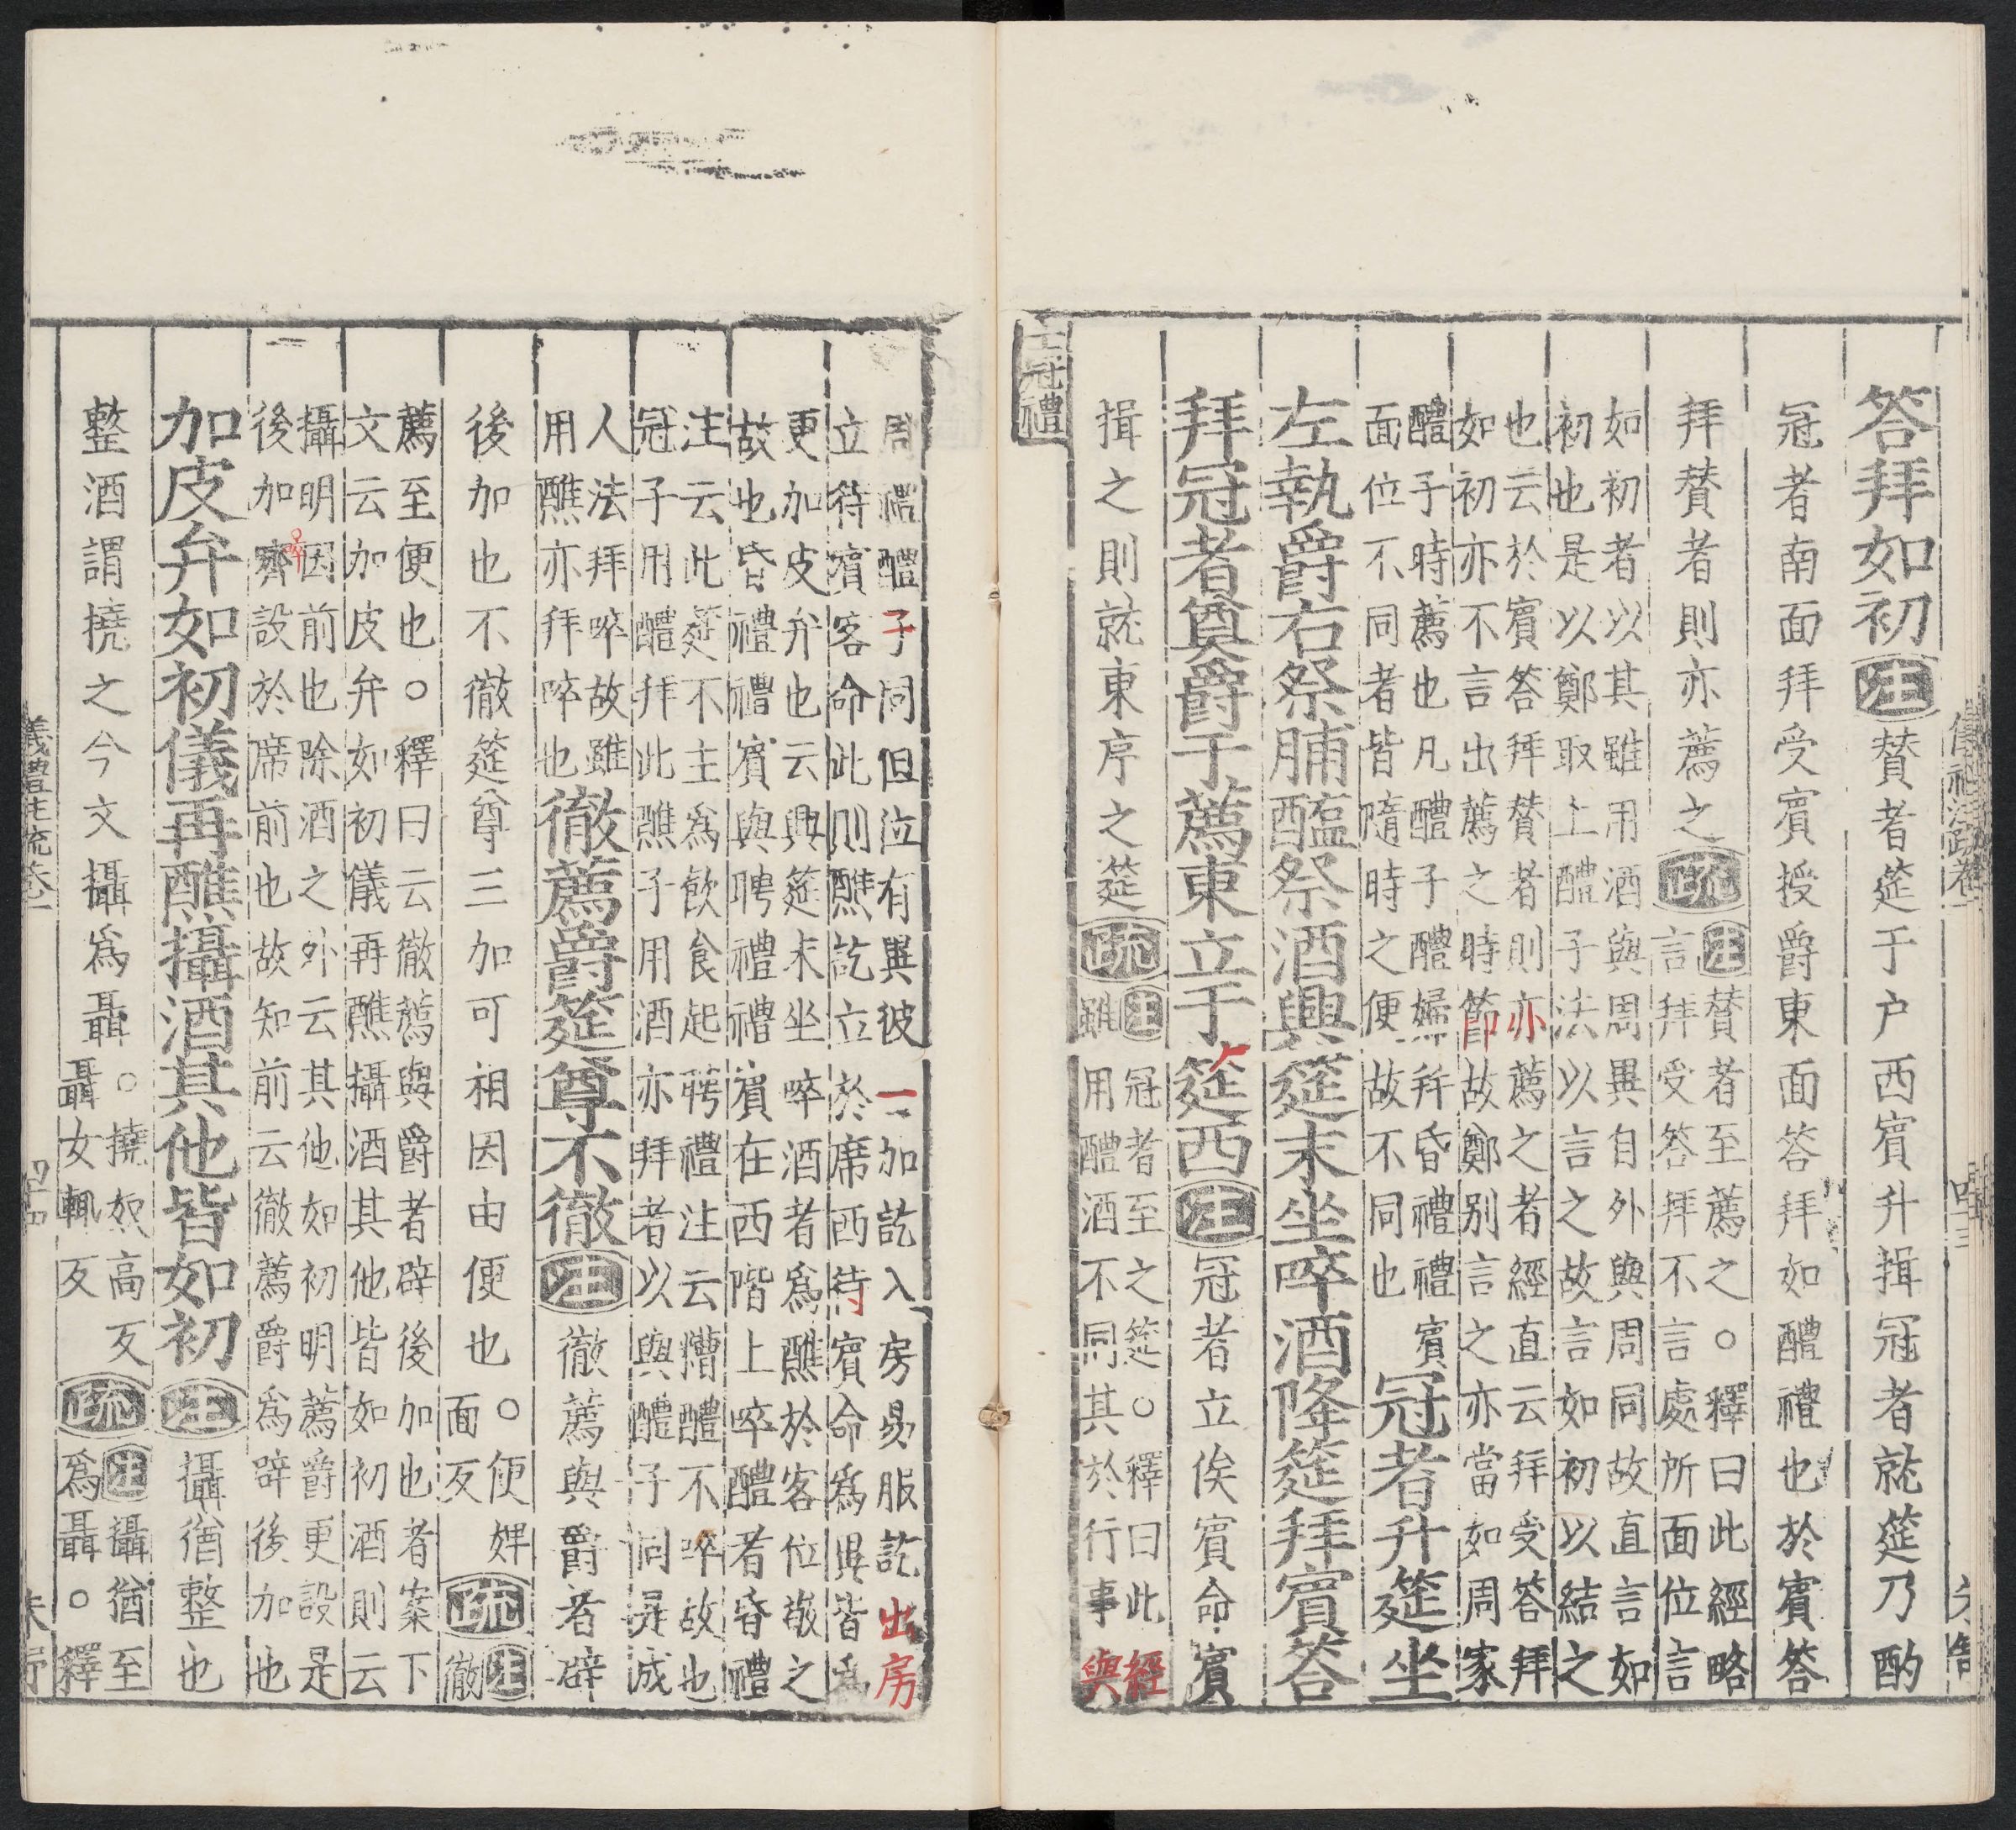 答拜如初注賛者筵于户西賓升揖冠者就筵乃酌
冠者南面拜受賓授爵東面答拜如醴禮也於賓答
拜賛者則亦薦之疏
注賛者至薦之○釋曰此經略
言拜受答拜不言處所面位言
如初者以其雖用酒與周異自外與周同故直言如
初也是以鄭取上醴子法以言之故言如初以結之
也云於賓答拜賛者則亦薦之者經直云拜受答拜
如初亦不言出薦之時節故鄭别言之亦當如周家
醴子時薦也凡醴子醴婦幷昏禮禮賓
面位不同者皆隨時之便故不同也
冠者升筵坐
左執爵右祭脯醢祭酒興筵末坐啐酒降筵拜賓答
拜冠者奠爵于薦東立于筵西注冠者立俟賓命賓
揖之則就東序之筵疏
注冠者至之筵○釋曰此經
雖用醴酒不同其於行事與
士冠禮
周禮醴子同但泣有異彼一加訖入房易服訖出房
立待賓客命此則醮訖立於席西待賓命爲異皆爲
更加皮弁也云興筵末坐啐酒者爲醮於客位敬之
故也昏禮禮賓與聘禮禮賓在西階上啐醴者昏禮
注云此筵不主爲飲食起聘禮注云糟醴不啐故也
冠子用醴拜此醮子用酒亦拜者以與醴子同是成
人法拜啐故雖
用醮亦拜啐也
徹薦爵筵尊不徹注徹薦與爵者辟
後加也不徹筵尊三加可相因由便也
○便婢
面反
疏
注
徹
薦至便也○釋曰云徹薦與爵者辟後加也者案下
文云加皮弁如初儀再醮攝酒其他皆如初酒則云
攝明因前也除酒之外云其他如初明薦爵更設是
後加啐齊設於席前也故知前云徹薦爵爲辟後加也
加皮弁如初儀再醮攝酒其他皆如初注攝猶整也
整酒謂撓之今文攝爲聶○
撓如高反
聶女輒反
疏
注攝猶至
爲聶○釋
儀禮注疏卷一